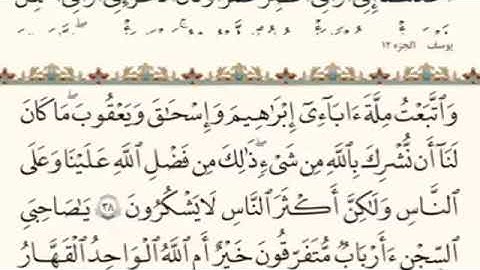 يوسف الجزء ١٢
وَٱتَّبَعْتُ مِلَّةَ ءَابَآءِىٓ إِبْرَٰهِيمَ وَإِسْحَٰقَ وَيَعْقُوبَ ۚ مَا كَانَ
لَنَآ أَن نُّشْرِكَ بِٱللَّهِ مِن شَىْءٍ ۚ ذَٰلِكَ مِن فَضْلِ ٱللَّهِ عَلَيْنَا وَعَلَى
ٱلنَّاسِ وَلَٰكِنَّ أَكْثَرَ ٱلنَّاسِ لَا يَشْكُرُونَ ٣٨ يَٰصَٰحِبَىِ
ٱلسِّجْنِ ءَأَرْبَابٌ مُّتَفَرِّقُونَ خَيْرٌ أَمِ ٱللَّهُ ٱلْوَٰحِدُ ٱلْقَهَّارُ